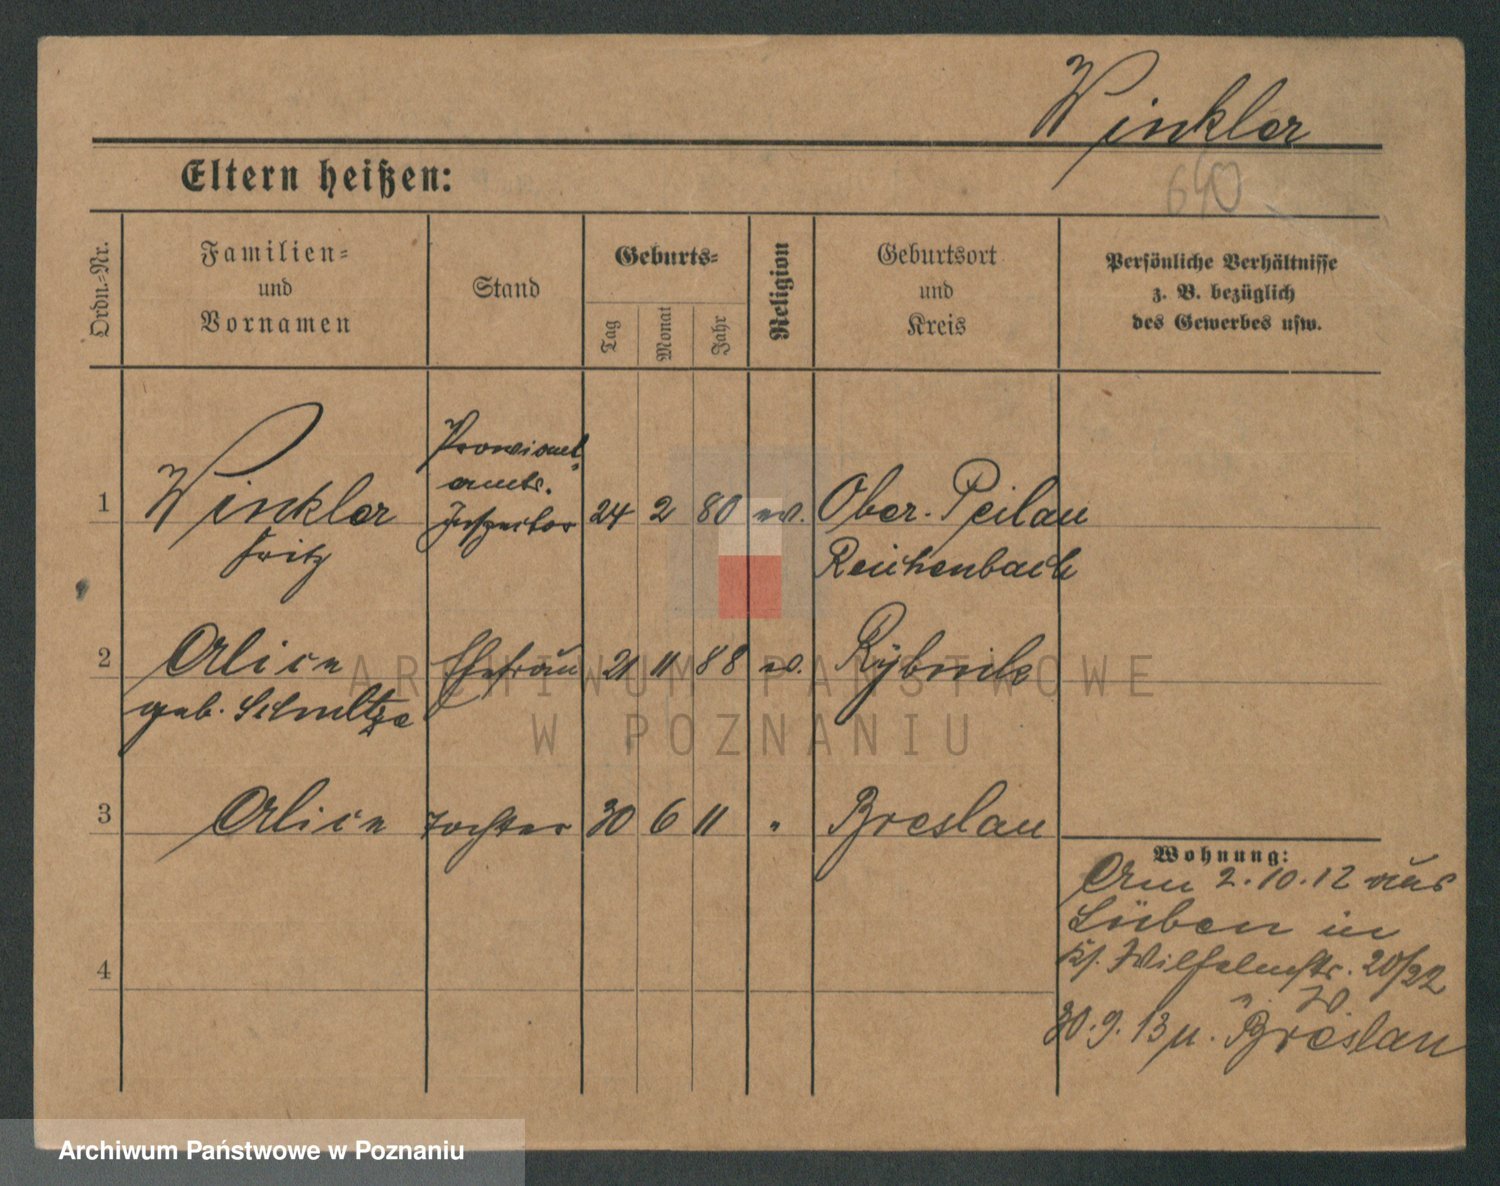 Winkler
640
Eltern heißen:
Ordn.-Nr.
Familien-
und
Vornamen
Stand
Geburts-
Tag
Monat
Jahr
Religion
Geburtsort
und
Kreis
Persönliche Verhältnisse
z. B. bezüglich
des Gewerbes usw.
1
Winkler
Fritz
Proviant
amts.
Inspektor
24 2 80 ev.
Ober. Peilau
Reichenbach
2
Alice
geb. Schultze
Ehefrau
21 11 88 ev.
Rybnik
3
Alice
Tochter
30 6 11 "
Breslau
4
Wohnung:
Am 2.10.12 aus
Lüben in
Kl. Wilhelmstr. 20/22
30.9.13 n. Breslau
ARCHIWUM PAŃSTWOWE
W POZNANIU
Archiwum Państwowe w Poznaniu